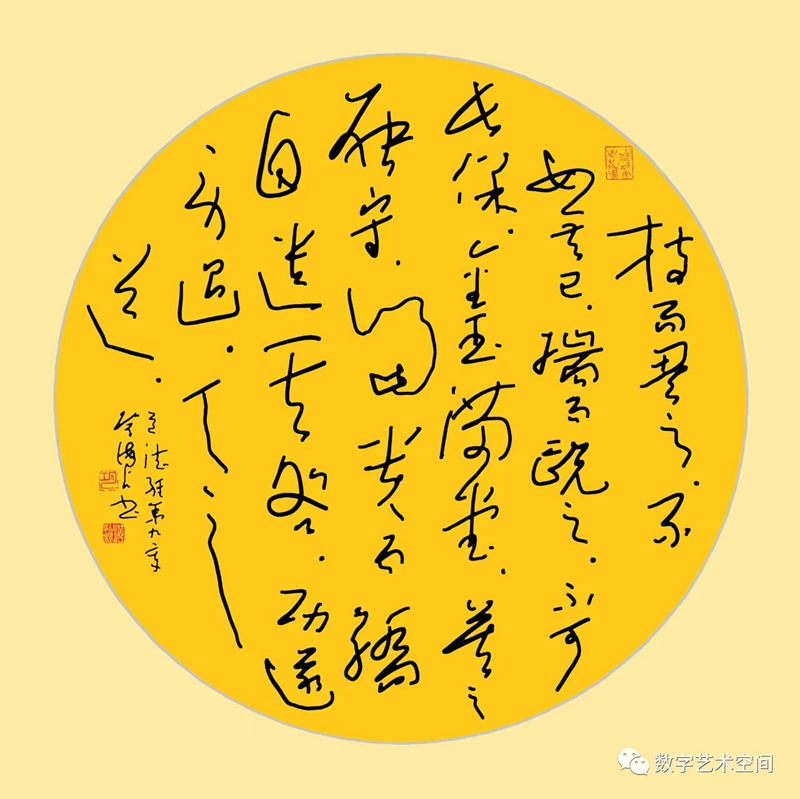 持而盈之、不
如其已、揣而锐之、不可
长保、金玉满堂、莫之
能守、富贵而骄
自遗其咎、功遂
身退、天之
道、
道德经第九章
书
数字艺术空间